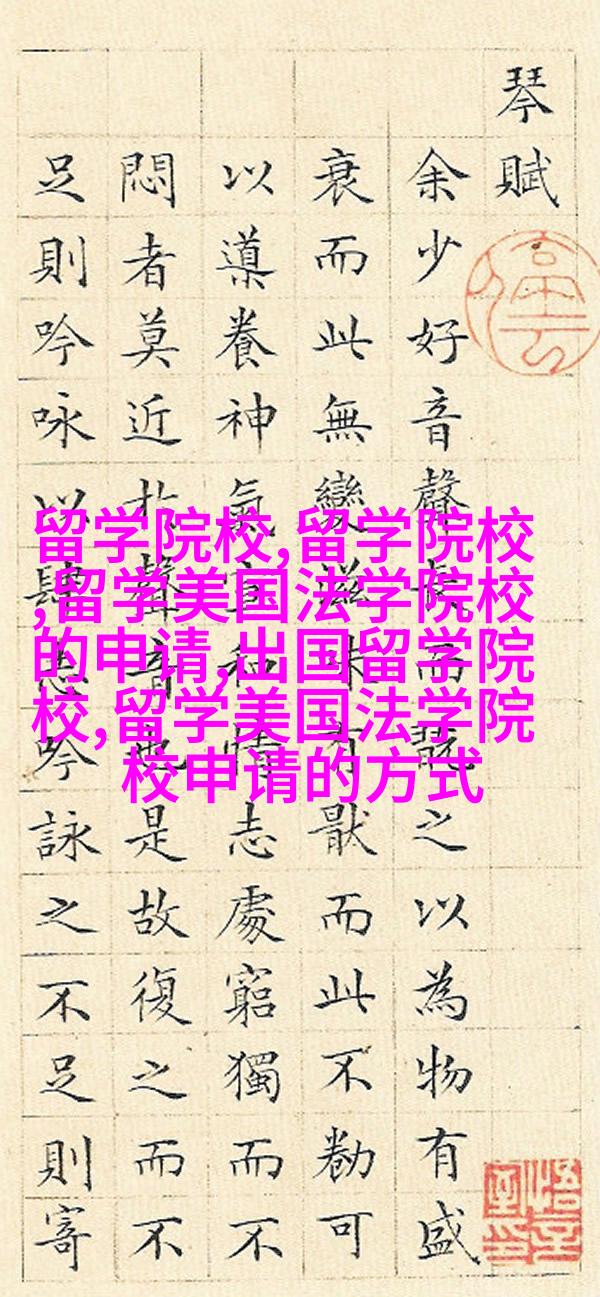 琴賦
余少好音聲長而翫之以為物有盛
衰而此無變滋味有猒而此不勌可
以導養神氣宣和情志處窮獨而不
悶者莫近扵聲音也是故復之而不
足則吟咏以肆志吟詠之不足則寄
留学院校,留学院校
,留学美国法学院校
的申请,出国留学院
校,留学美国法学院
校申请的方式